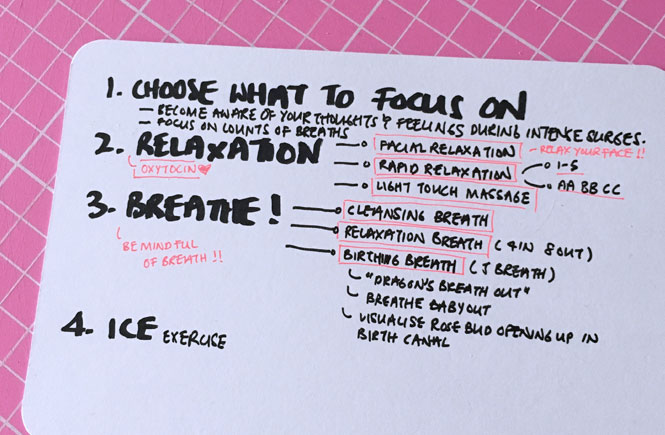 1. CHOOSE WHAT TO FOCUS ON
— BECOME AWARE OF YOUR THOUGHTS & FEELINGS DURING INTENSE SURGES.
— FOCUS ON COUNTS OF BREATHS
2. RELAXATION
OXYTOCIN
FACIAL RELAXATION – RELAX YOUR FACE!!
RAPID RELAXATION
1-5
AA BB CC
LIGHT TOUCH MASSAGE
3. BREATHE!
BE MINDFUL
OF BREATH!!
CLEANSING BREATH
RELAXATION BREATH (4IN 8OUT)
BIRTHING BREATH (J BREATH)
"DRAGON'S BREATH OUT"
BREATHE BABY OUT
VISUALISE ROSE BUD OPENING UP IN
BIRTH CANAL
4. ICE EXERCISE